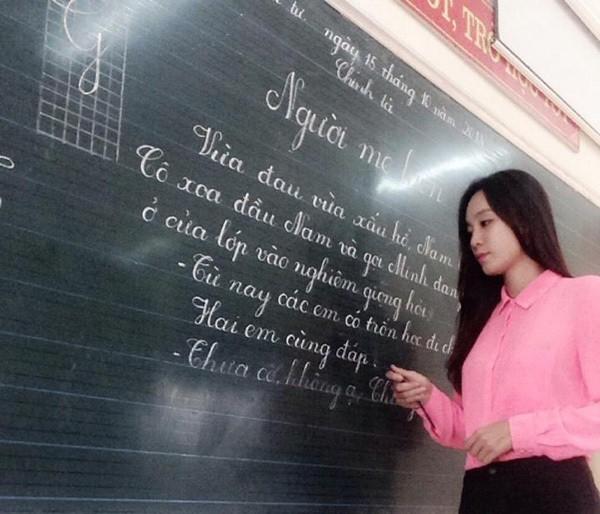 G
tư ngày 15 tháng 10 năm
Chính tả
Người mẹ hiền
Vừa đau vừa xấu hổ, Nam
Cô xoa đầu Nam và gọi Minh đang
ở cửa lớp vào nghiêm giọng hỏi:
- Từ nay các em có trốn học đi
Hai em cùng đáp.
- Thưa cô, không ạ.